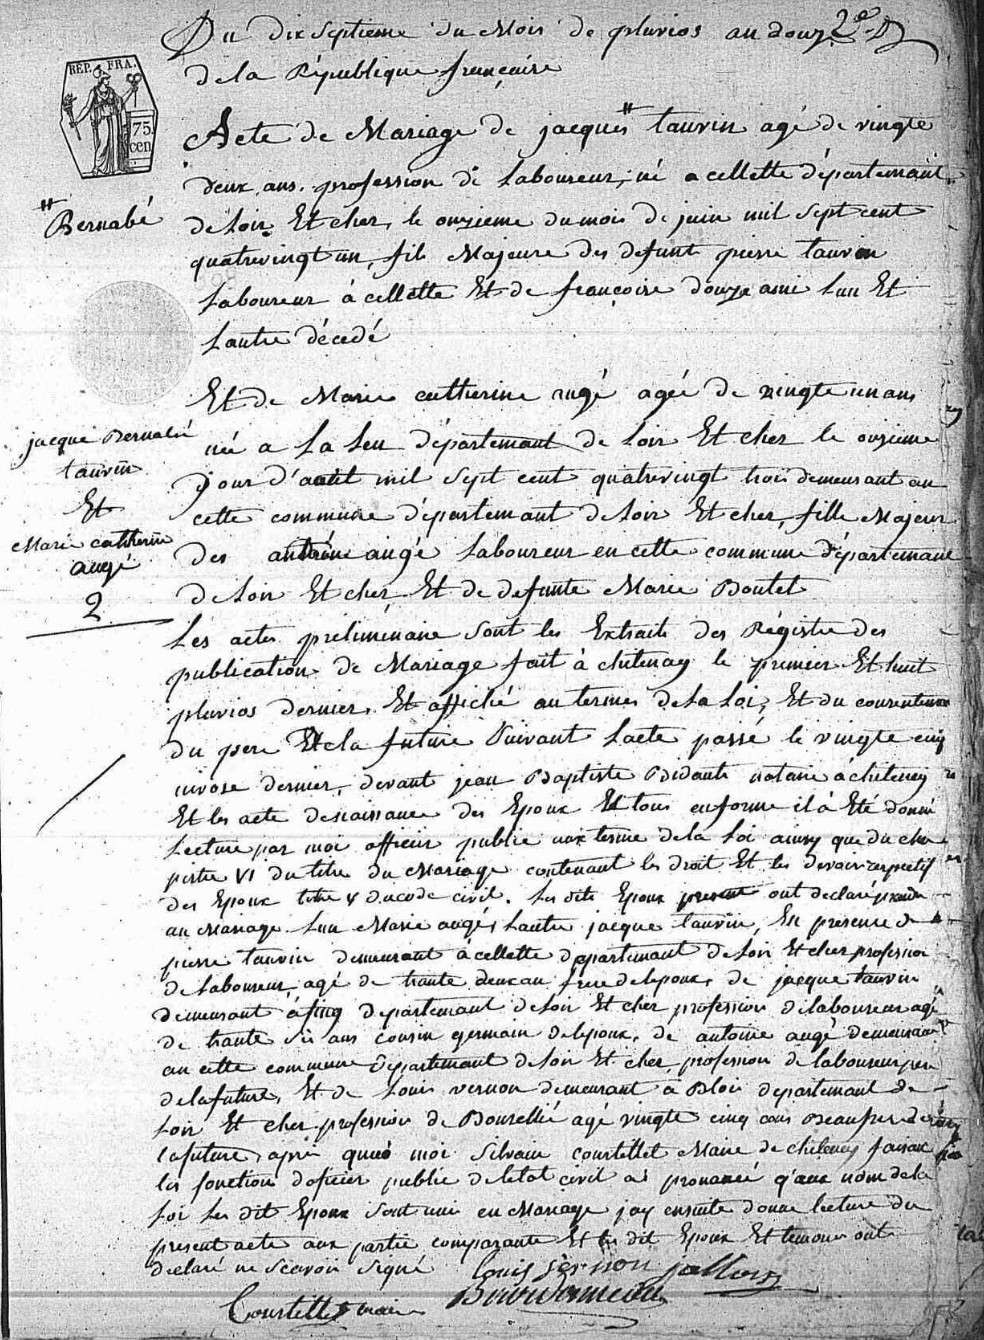 Du dix Septieme du Mois de pluvios an douze
de la République françaire
REP. FRA.
75.
cen
Acte de Mariage de jacques # tauvin agé de vingte
deux ans, profession de Laboureur, né a cellette départemant
# Bernabé
de Loir Et cher, le onzieme du mois de juin mil Sept cent
quatrevingt un, fils Majeure des defunt pierre tauvin
Laboureur à cellette Et de françoise douze ami Lun Et
Lautre décedé
Et de Marie catherine augé agée de vingte un ans
née a La departemant de Loir Et cher le onzieme
jour d'aout mil Sept cent quatrevingt trois demeurant au
cette commune départemant de Loir Et cher, fille Majeur
des antoine augé Laboureur en cette commune départemant
de Loir Et cher Et de defunte Marie Boutet
jacque Bernabé
tauvin
Et
Marie catherine
augé
2
Les actes préliminaire Sont les Extraits des Régistre des
publication de Mariage fait à chitenay le premier Et huit
pluvios dernier, Et affiché au termes de La Loi, Et du consenteman
du pere Et la future Suivant Lacte passé le vingte cinq
nivose dernier, devant jean Baptiste Bidault notaire à chiteney
Et les acte de naissance des Epoux Et tous en forme il à Eté donné
Lecture par moi officier publie aux terme de la Loi ainsy que du cha
pitre VI du titre du Mariage contenant les droit Et les devoir respectif
des Epoux titre V du code civil. Les dits Epoux present ont declaré prendre
au Mariage Lun Marie augé, Lautre jacque tauvin, En presence de
pierre tauvin demeurant à cellette departemant de Loir Et cher profession
de Laboureur, agé de trante deux an frere de lepoux, de jacque tauvin
demeurant à departemant de Loir Et cher profession de laboureur agé
de trante six ans cousin germain de lepoux, de antoine augé demeurant
au cette commune departemant de Loir Et cher, profession de laboureur pere
de la future, Et de Louis vernon demeurant à Blois departemant de
Loir Et cher profession de Bourellié agé vingte cinq ans Beaufrere de
La future, apres quoi moi Silvain Courtillet Maire de chiteney faisant
les fonction doficier publie de letat civil ai prononcé q'aux nom de la
Loi Les dit Epoux Sont unis en Mariage jay ensuite donné lecture du
present acte aux partie comparante Et les dit Epoux Et temoin ont
declaré ne Scavoir Signé
Louis vernon
Courtillet maire